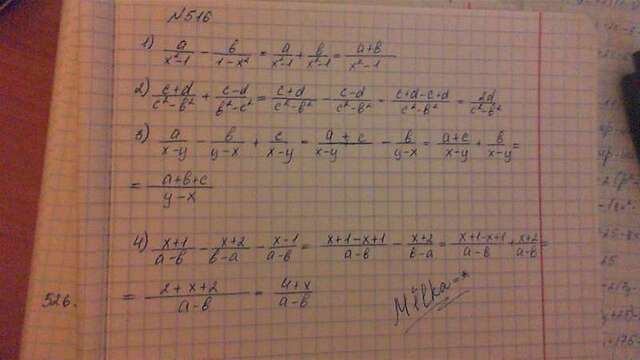 №516
1) a/(x²-1) - b/(1-x²) = a/(x²-1) + b/(x²-1) = (a+b)/(x²-1)
2) (c+d)/(c²-b²) + (c-d)/(b²-c²) = (c+d)/(c²-b²) - (c-d)/(c²-b²) = (c+d-c+d)/(c²-b²) = 2d/(c²-b²)
3) a/(x-y) - b/(y-x) + c/(x-y) = (a+c)/(x-y) - b/(y-x) = (a+c)/(x-y) + b/(x-y) =
= (a+b+c)/(y-x)
4) (x+1)/(a-b) - (x+2)/(b-a) - (x-1)/(a-b) = (x+1-x+1)/(a-b) - (x+2)/(b-a) = (x+1-x+1)/(a-b) + (x+2)/(a-b) =
526.
= (2+x+2)/(a-b) = (4+x)/(a-b)
Milka =*